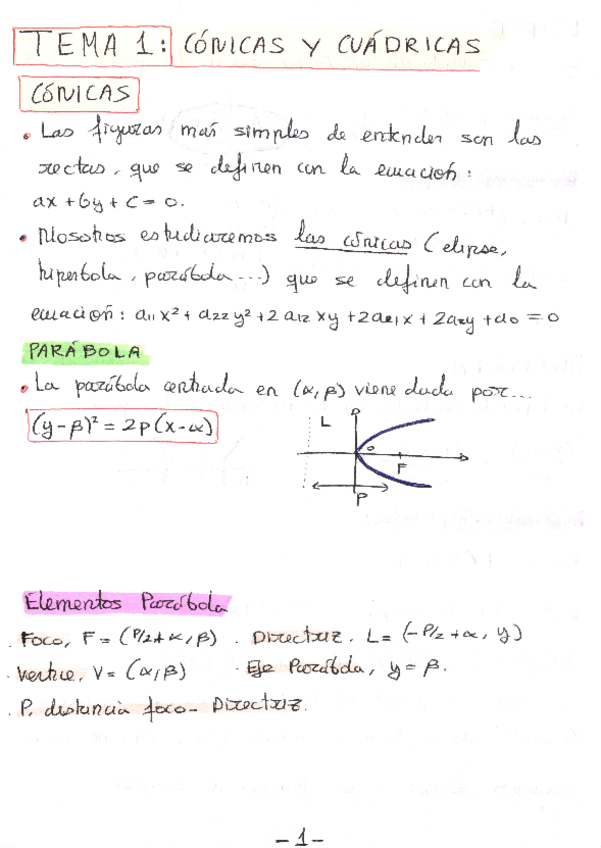 TEMA 1: CÓNICAS Y CUÁDRICAS
CÓNICAS
• Las figuras mas simples de entender son las
rectas, que se definen con la ecuación:
ax + by + c = 0.
• Nosotros estudiaremos las cónicas (elipse,
hiperbola, parábola...) que se definen con la
ecuación: a₁₁x² + a₂₂y² + 2a₁₂xy + 2a₀₁x + 2a₀₂y + a₀ = 0
PARÁBOLA
• La parábola centrada en (α, β) viene dada por...
(y-β)² = 2p(x-α)
L
o
F
P
Elementos Parábola
. Foco, F = (P/2 + α, β) . Directriz. L = (-P/2 + α, y)
. Vertice, V = (α, β) . Eje Parábola, y = β.
. P. distancia foco - Directriz.
- 1 -